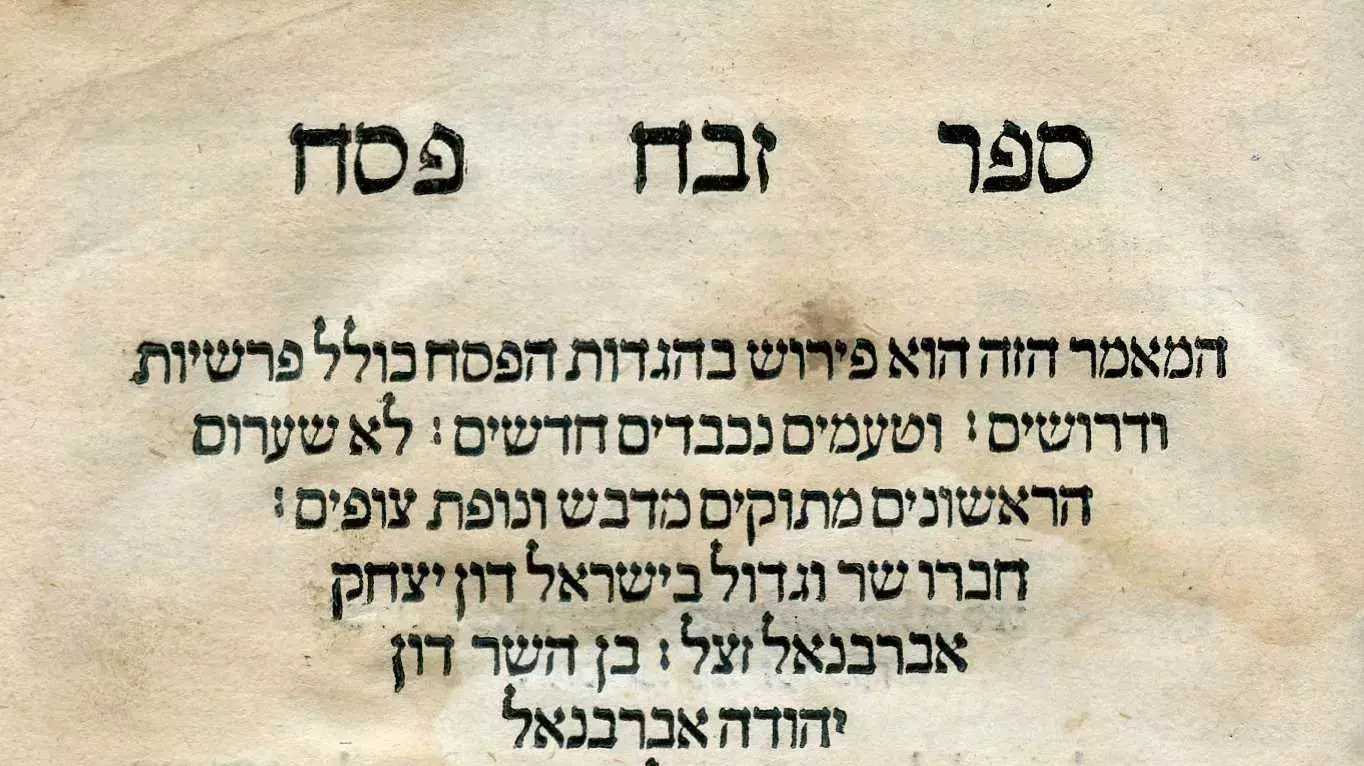 ספר זבח פסח
המאמר הזה הוא פירוש בהגדות הפסח כולל פרשיות
ודרושים : וטעמים נכבדים חדשים : לא שערום
הראשונים מתוקים מדבש ונופת צופים :
חברו שר וגדול בישראל דון יצחק
אברבנאל זצל : בן השר דון
יהודה אברבנאל